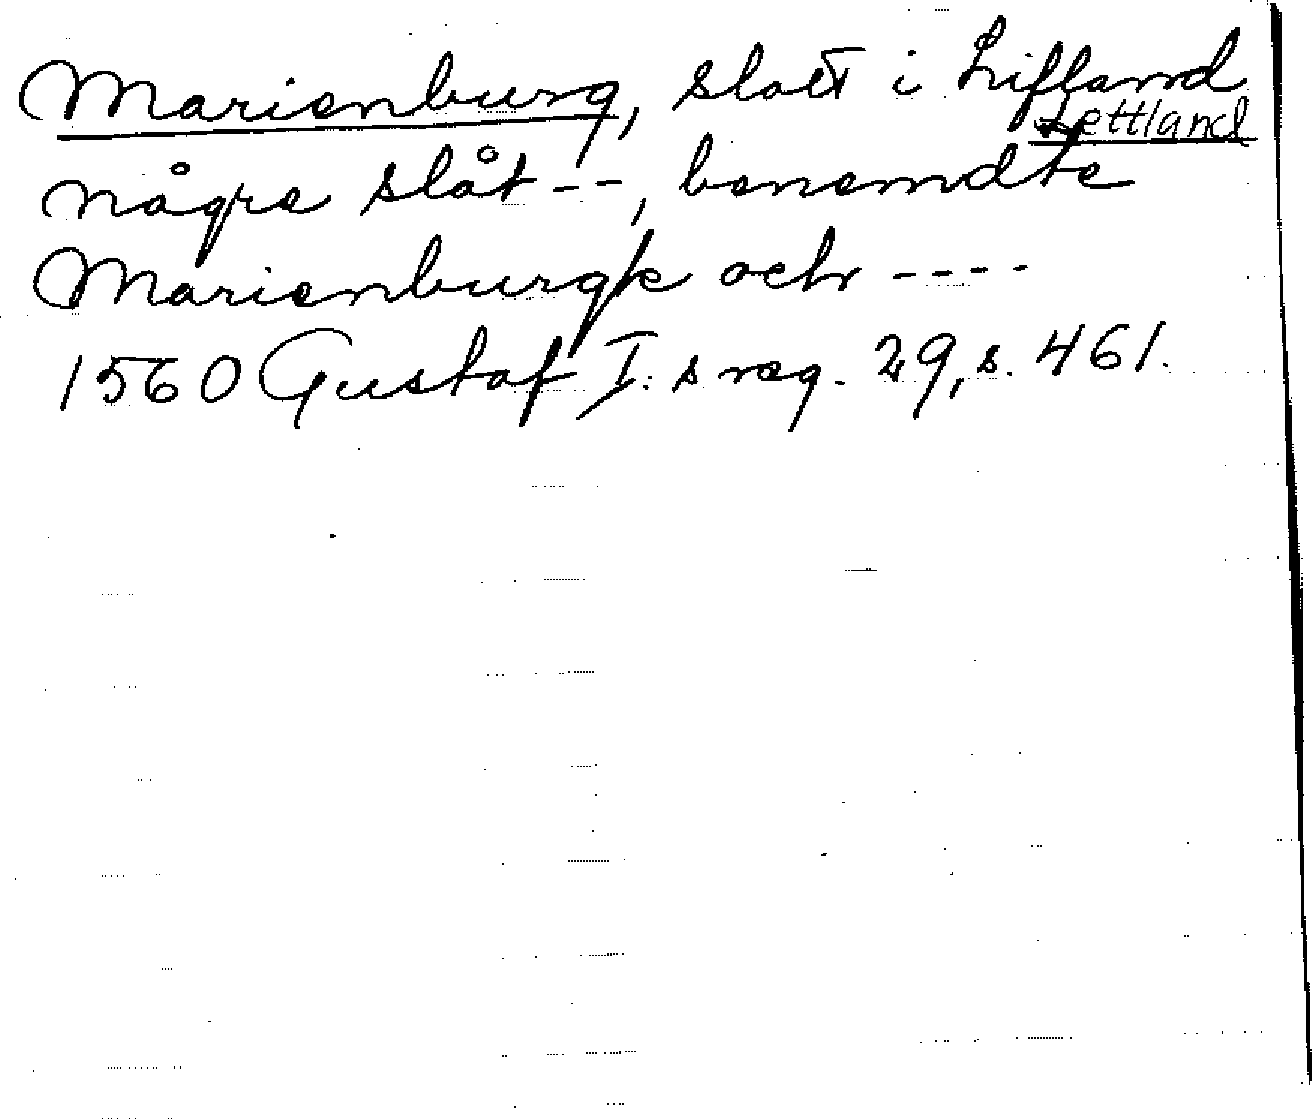 Marienburg, slott i Lifland
Lettland
någre slåt --, benemdte
Marienburgk och ----
1560 Gustaf I:s reg. 29, s. 461.